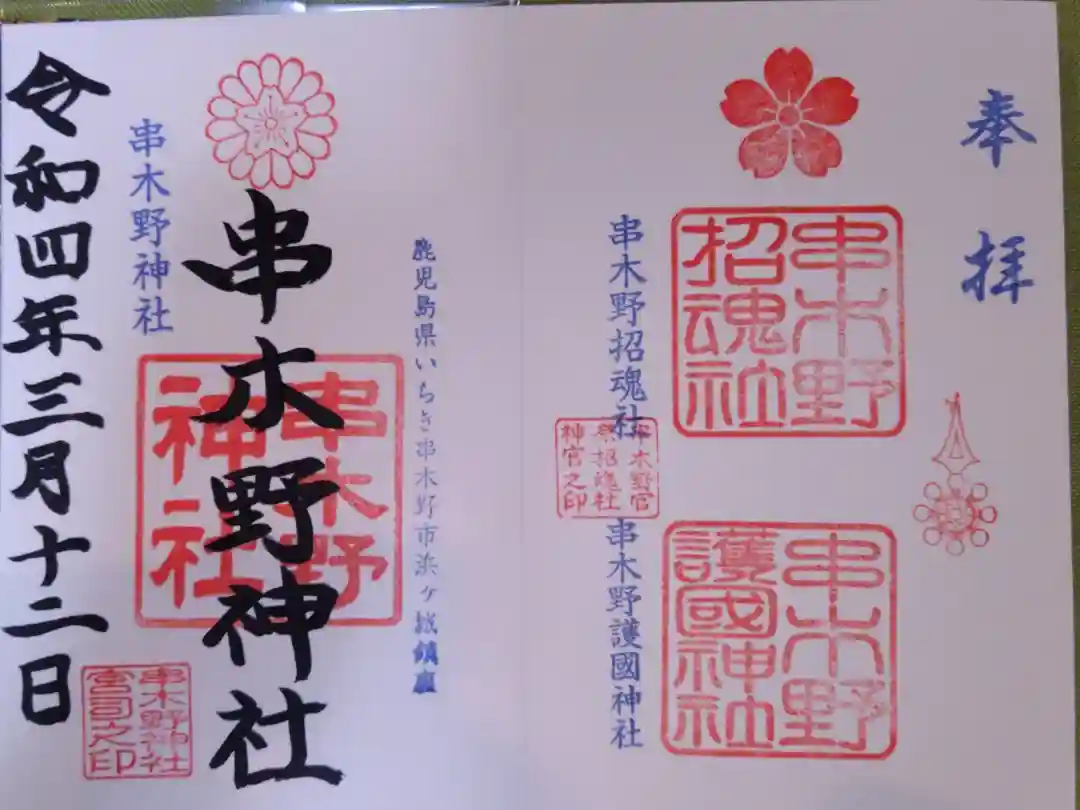 奉拝
串木野
招魂社
串木野招魂社
串木野官
祭招魂社
神官之印
串木野護國神社
串木野
護國神社
鹿児島県いちき串木野市浜ヶ城鎮座
串木野神社
串木野
神社
串木野神社
串木野神社
宮司之印
令和四年三月十二日